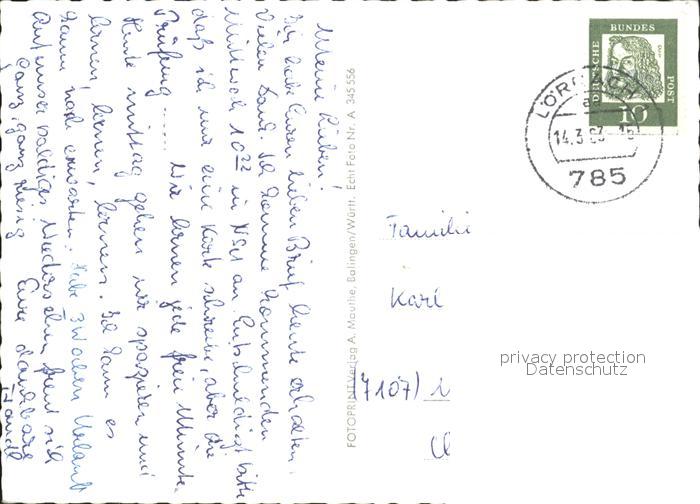 Meine Lieben!
Ich habe Euren lieben Brief heute erhalten.
Vielen Dank. Ich komme kommenden
Mittwoch 10²² in NSU an. Entschuldigt bitte
daß ich nur eine Karte schreibe, aber die
Prüfung...... Wir lernen jede freie Minute.
Heute mittag gehen wir spazieren und
lernen, lernen, lernen. Ich kann es
kaum noch erwarten. Habe 3 Wochen Urlaub
Auf unser baldiges Wiedersehn freut sich
ganz, ganz riesig Eure dankbare
FOTOPRINT Verlag A. Mauthe, Balingen/Württ. Echt Foto Nr. A 345556
DEUTSCHE BUNDES POST
10
LÖRRACH
a
14.3.63-16
785
Familie
Karl
(7107)
privacy protection
Datenschutz